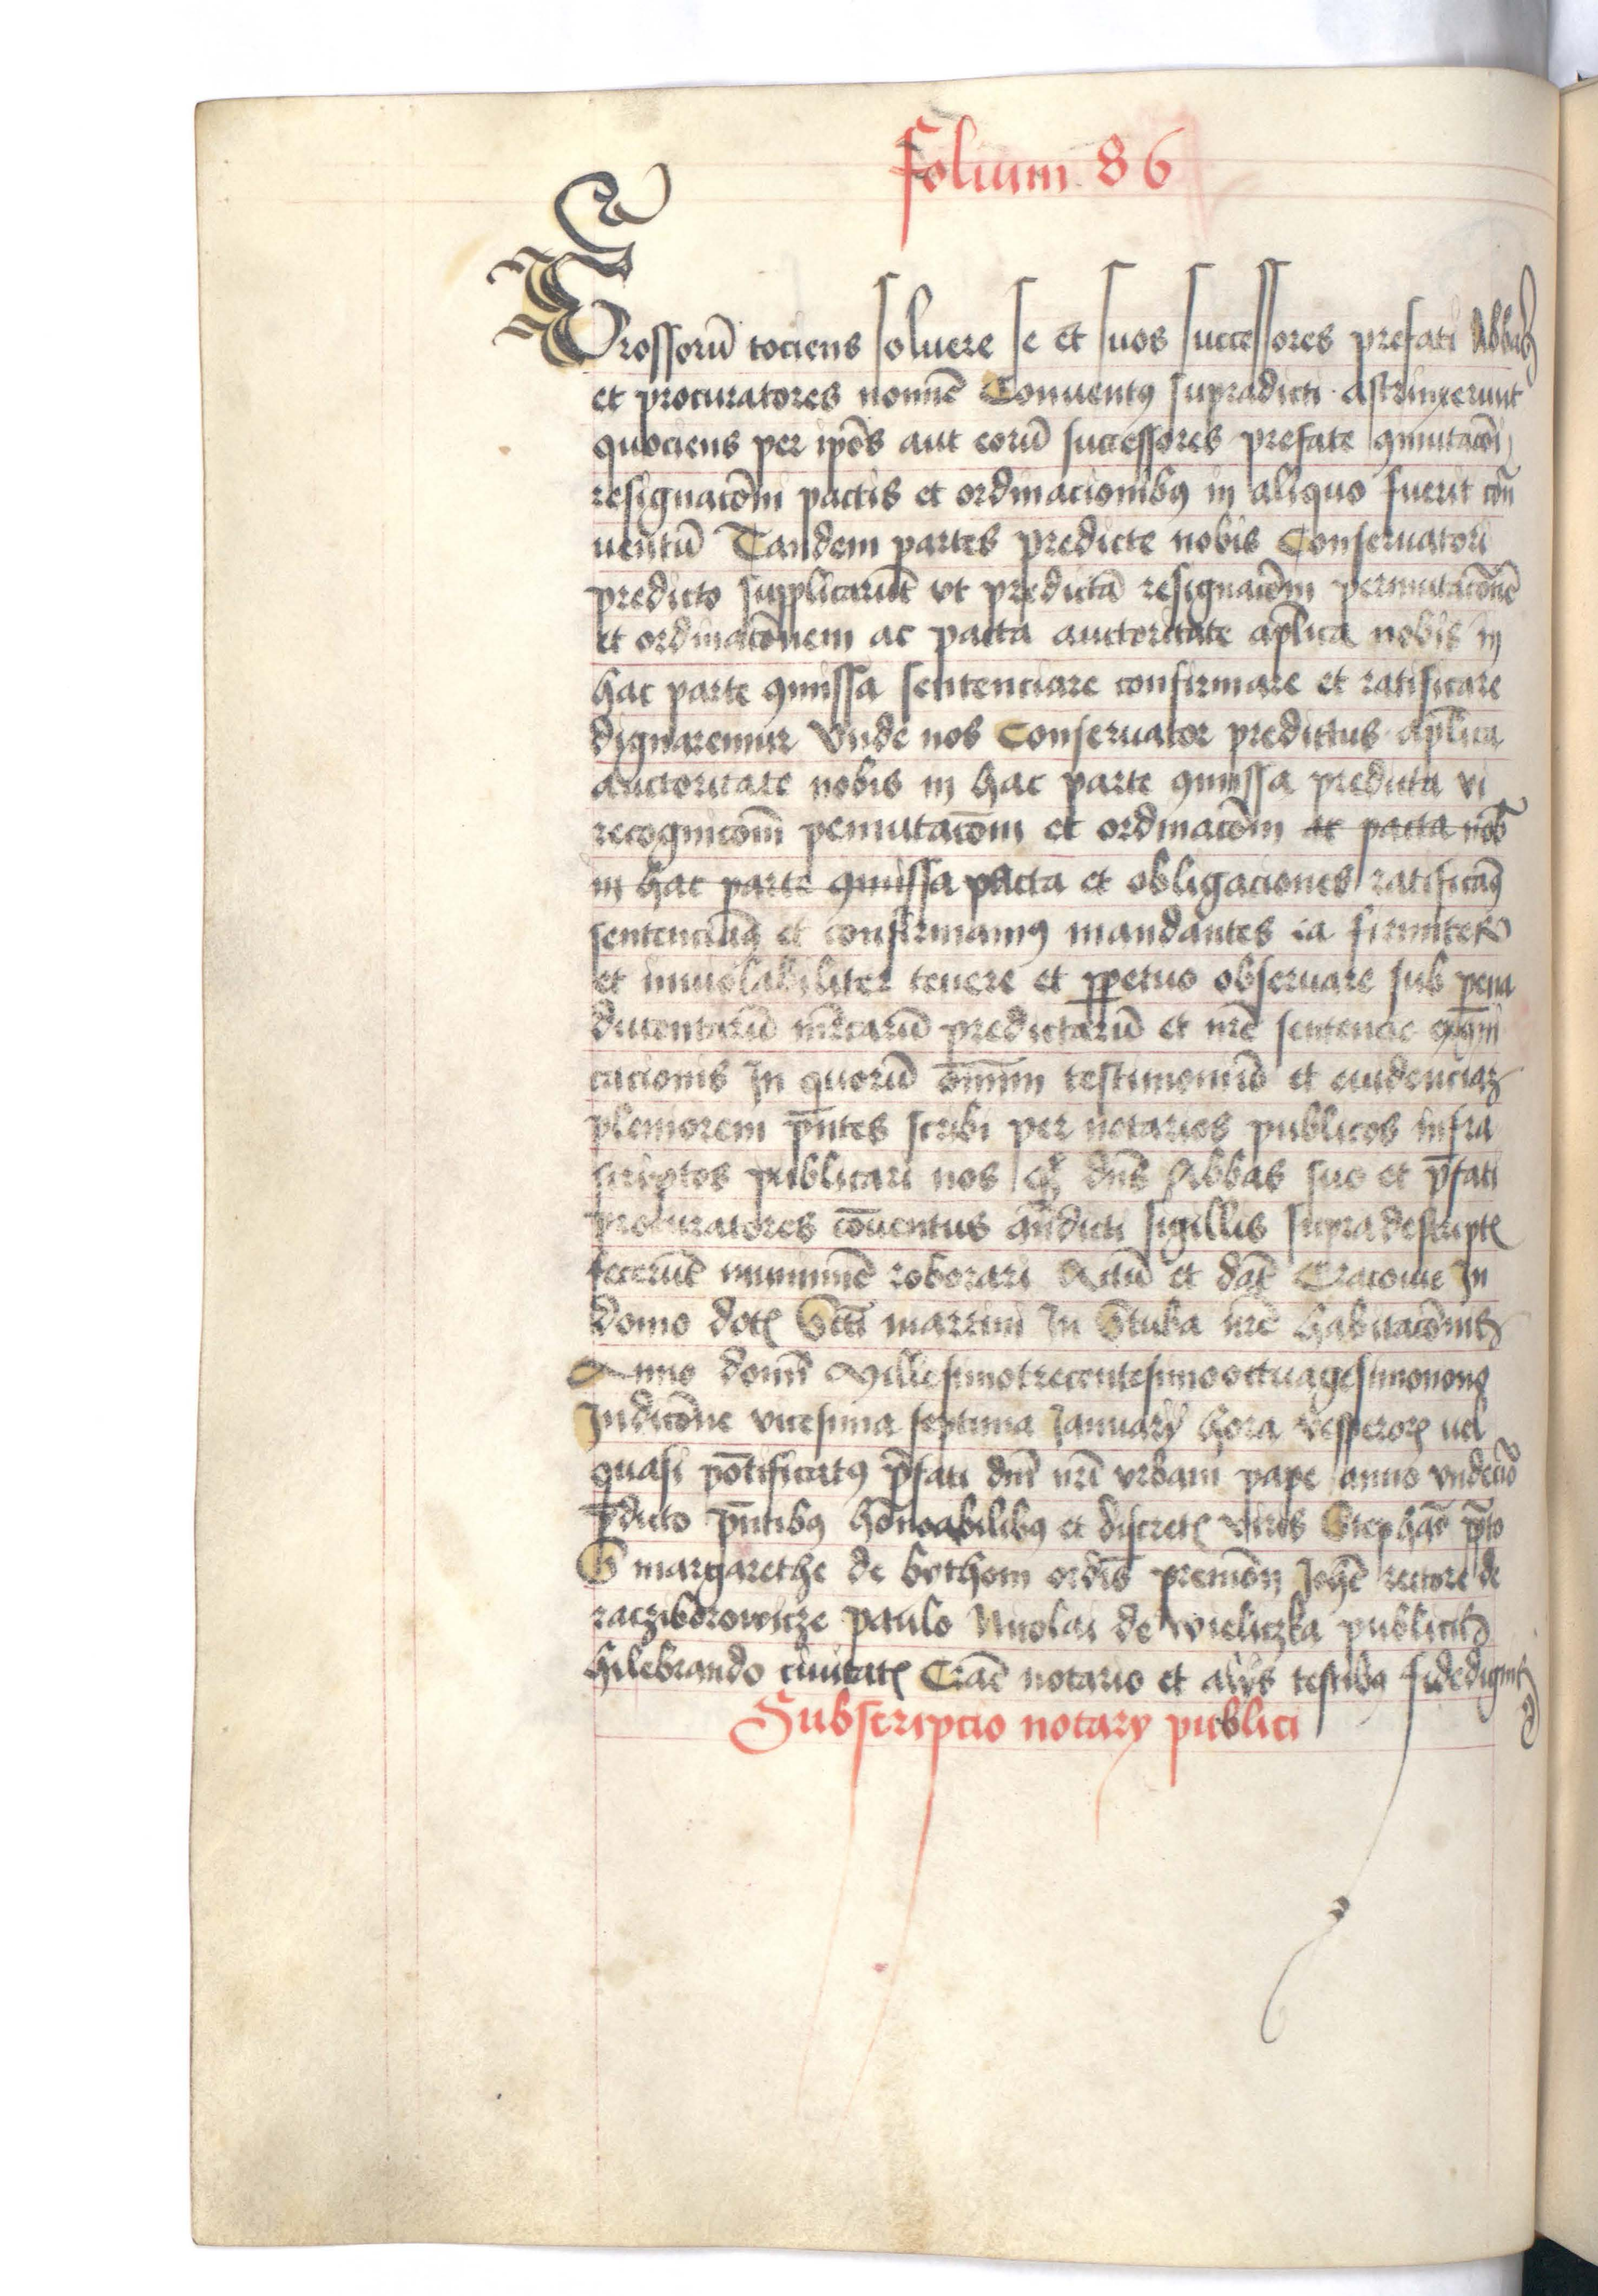 folium 86
Grossorū tociens soluere se et suos successores prefati Abbas
et procuratores nomīe Conuentꝯ supradicti astrinxerunt
quociens per ip̄os aut eorū successores prefate ꝯmutacōi
resignacōni pactis et ordinacionibꝯ in aliquo fuerit cōn
uentū Tandem partes predicte nobis Conseruatori
predicto supplicarūt vt predictā resignacōem permutacōnē
et ordinacōnem ac pacta auctoritate ap̄lica nobis in
hac parte ꝯmissa sentenciare confirmare et ratificare
dignaremur Vnde nos Conseruator predictus ap̄lica
auctoritate nobis in hac parte ꝯmissa predicta vi
recognicōm pemutacōm et ordinacōm ac pacta nob̄
in hac parte ꝯmissa pacta et obligaciones ratificamꝯ
sentenciamꝯ et confirmamꝯ mandantes ea firmiter
et inuiolabiliter tenere et ꝑpetuo obseruare sub pena
ducentarū mrcarū predictarū et nr̄e sentencie exꝯmi
cacionis In quorū om̄nium testimoniū et euidenciaꝫ
pleniorem pn̄tes scribi per notarios publicos infra
scriptos publicari nos dn̄s Abbas suo et p̄fati
procuratores cōuentus an̄dicti sigillis supradescriptꝭ
fecerūt munimīe roborari Actū et dat̄ Cracouie In
domo dotꝭ Sc̄ti martini In Stuba nr̄e habitacōnis
Anno domī Millesimotrecentesimooctuagesimonono
Indicōne vicesima septima January hora vesperorꝭ uel
quasi pōtificatꝯ p̄fati dn̄i nr̄i vrbani pape anno vndecīo
p̄dicto pn̄tibꝯ hōnoabilibꝯ et discretꝭ viris Stephāo
S margarethe de bothom ordīs premōn Joh̄e rectore de
racziborowicze paulo Nicolai de wieliczka publicis
hilebrando ciuitatꝭ Crac̄ notario et alijs testibꝯ fidedignis
Subscripcio notary publici